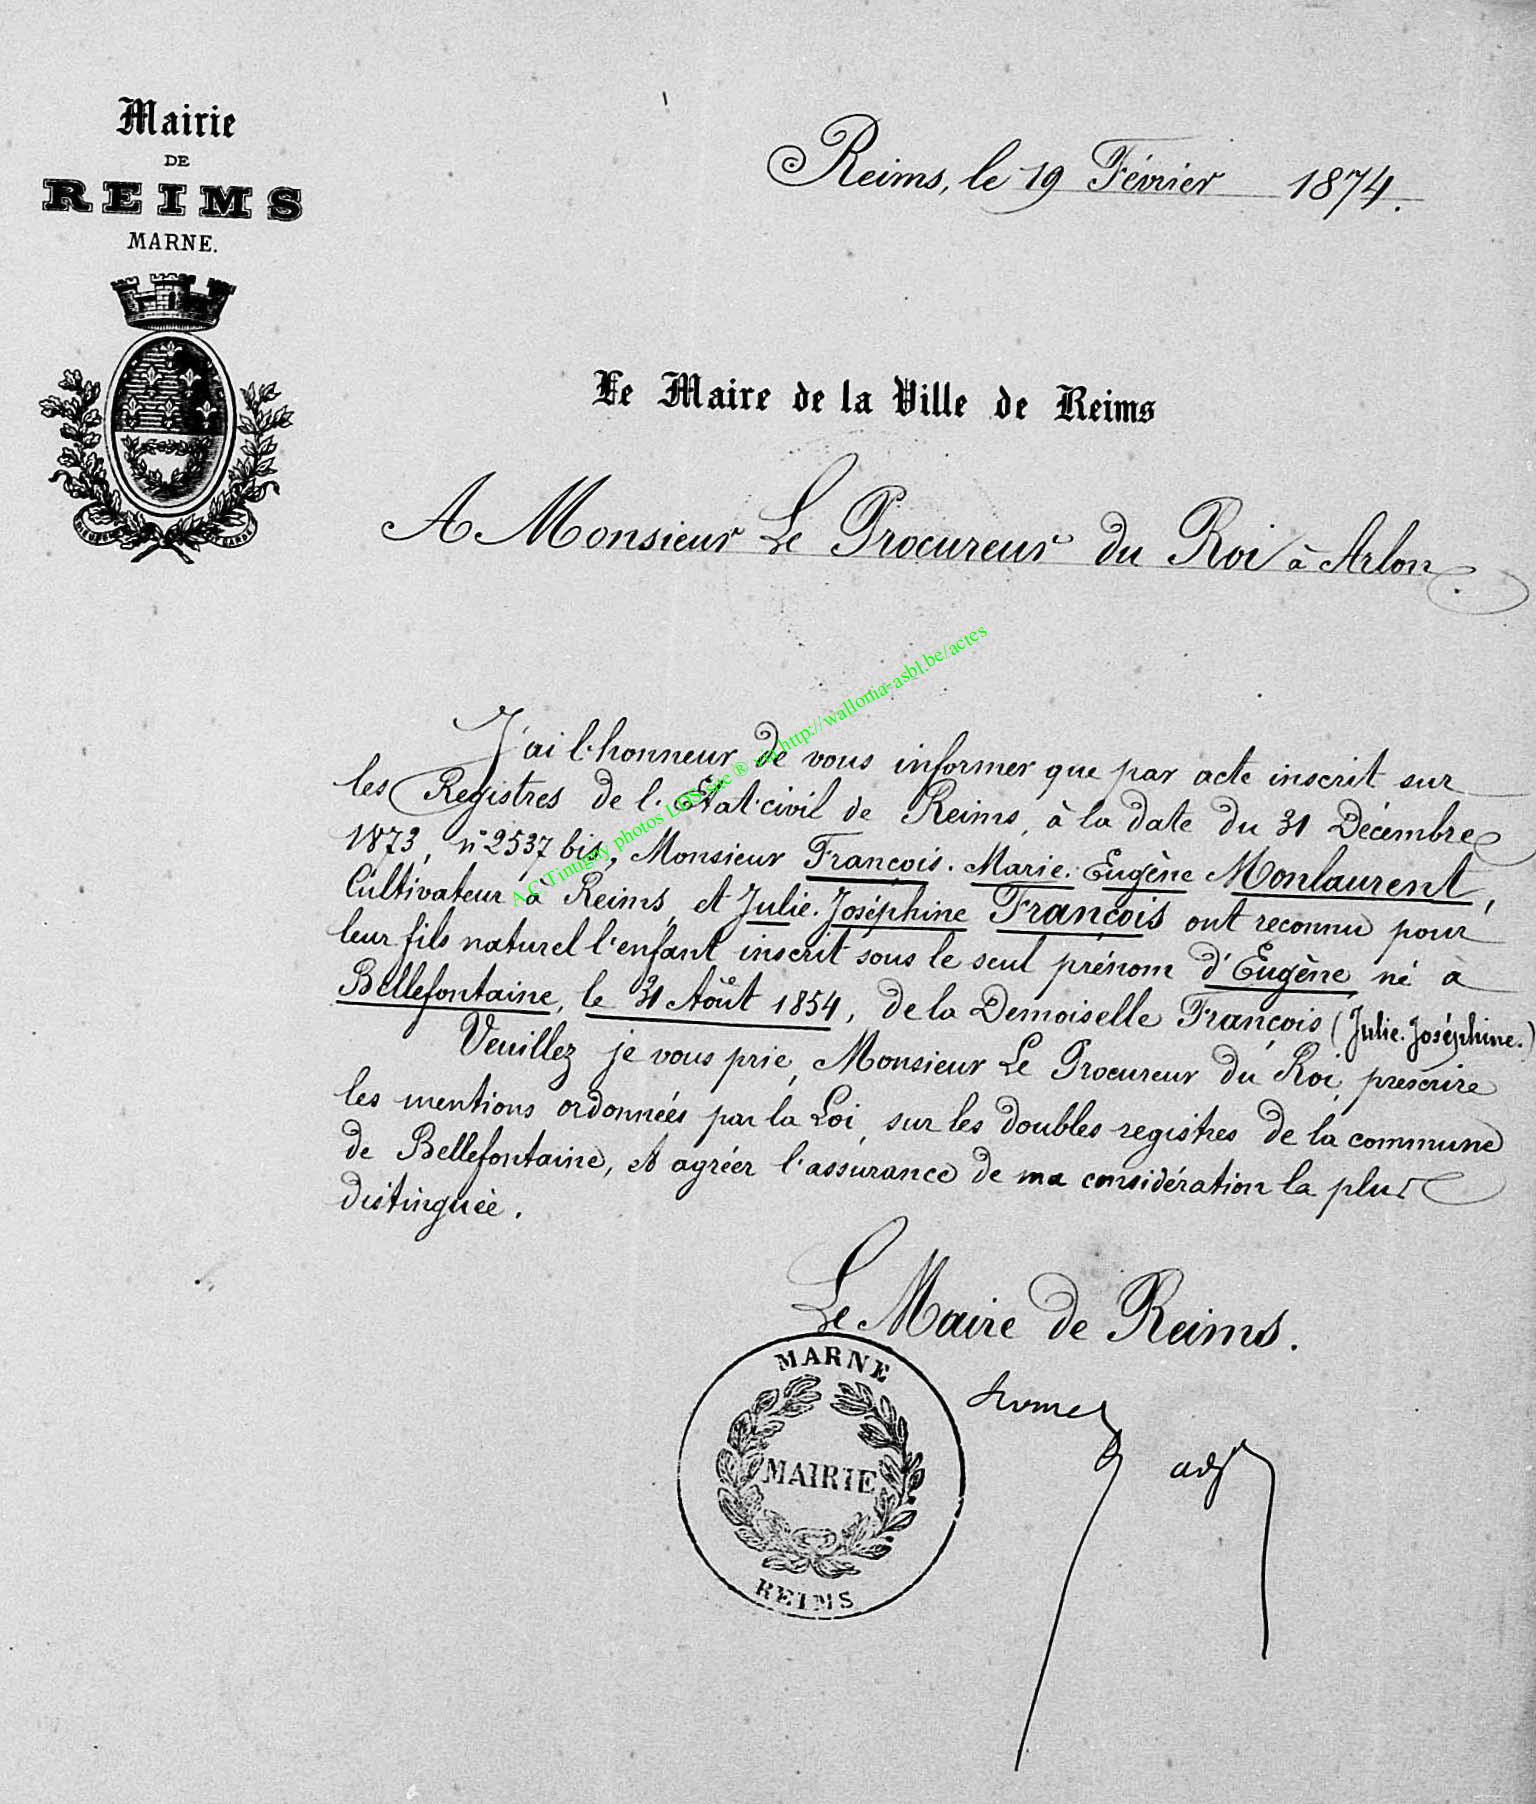 Mairie
DE
REIMS
MARNE.
Reims, le 19 Février 1874.
Le Maire de la Ville de Reims
A Monsieur Le Procureur du Roi à Arlon.
J'ai l'honneur de vous informer que par acte inscrit sur
les Registres de l'Etat civil de Reims, à la date du 31 Décembre
1873, n° 2537 bis, Monsieur François. Marie. Eugène Monlaurent,
Cultivateur à Reims, et Julie. Joséphine François ont reconnu pour
leur fils naturel l'enfant inscrit sous le seul prénom d'Eugène, né à
Bellefontaine, le 31 Août 1854, de la Demoiselle François (Julie. Joséphine.)
Veuillez je vous prie, Monsieur Le Procureur du Roi, prescrire
les mentions ordonnées par la Loi, sur les doubles registres de la commune
de Bellefontaine, et agréer l'assurance de ma considération la plus
distinguée.
Le Maire de Reims.
MARNE
MAIRIE
REIMS
adj
A.C Tintigny photos LDS site ® via http://wallonia-asbl.be/actes